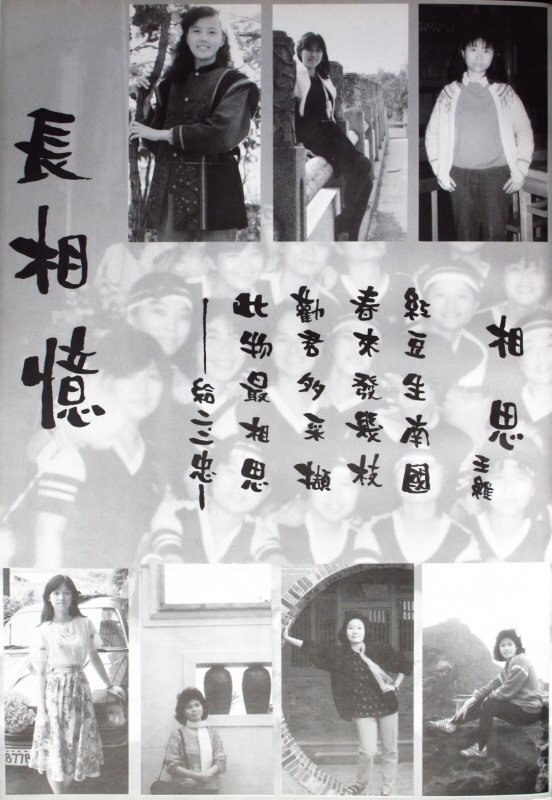 相思
王維
紅豆生南國
春來發幾枝
勸君多采擷
此物最相思
——給二三忠—
長相憶